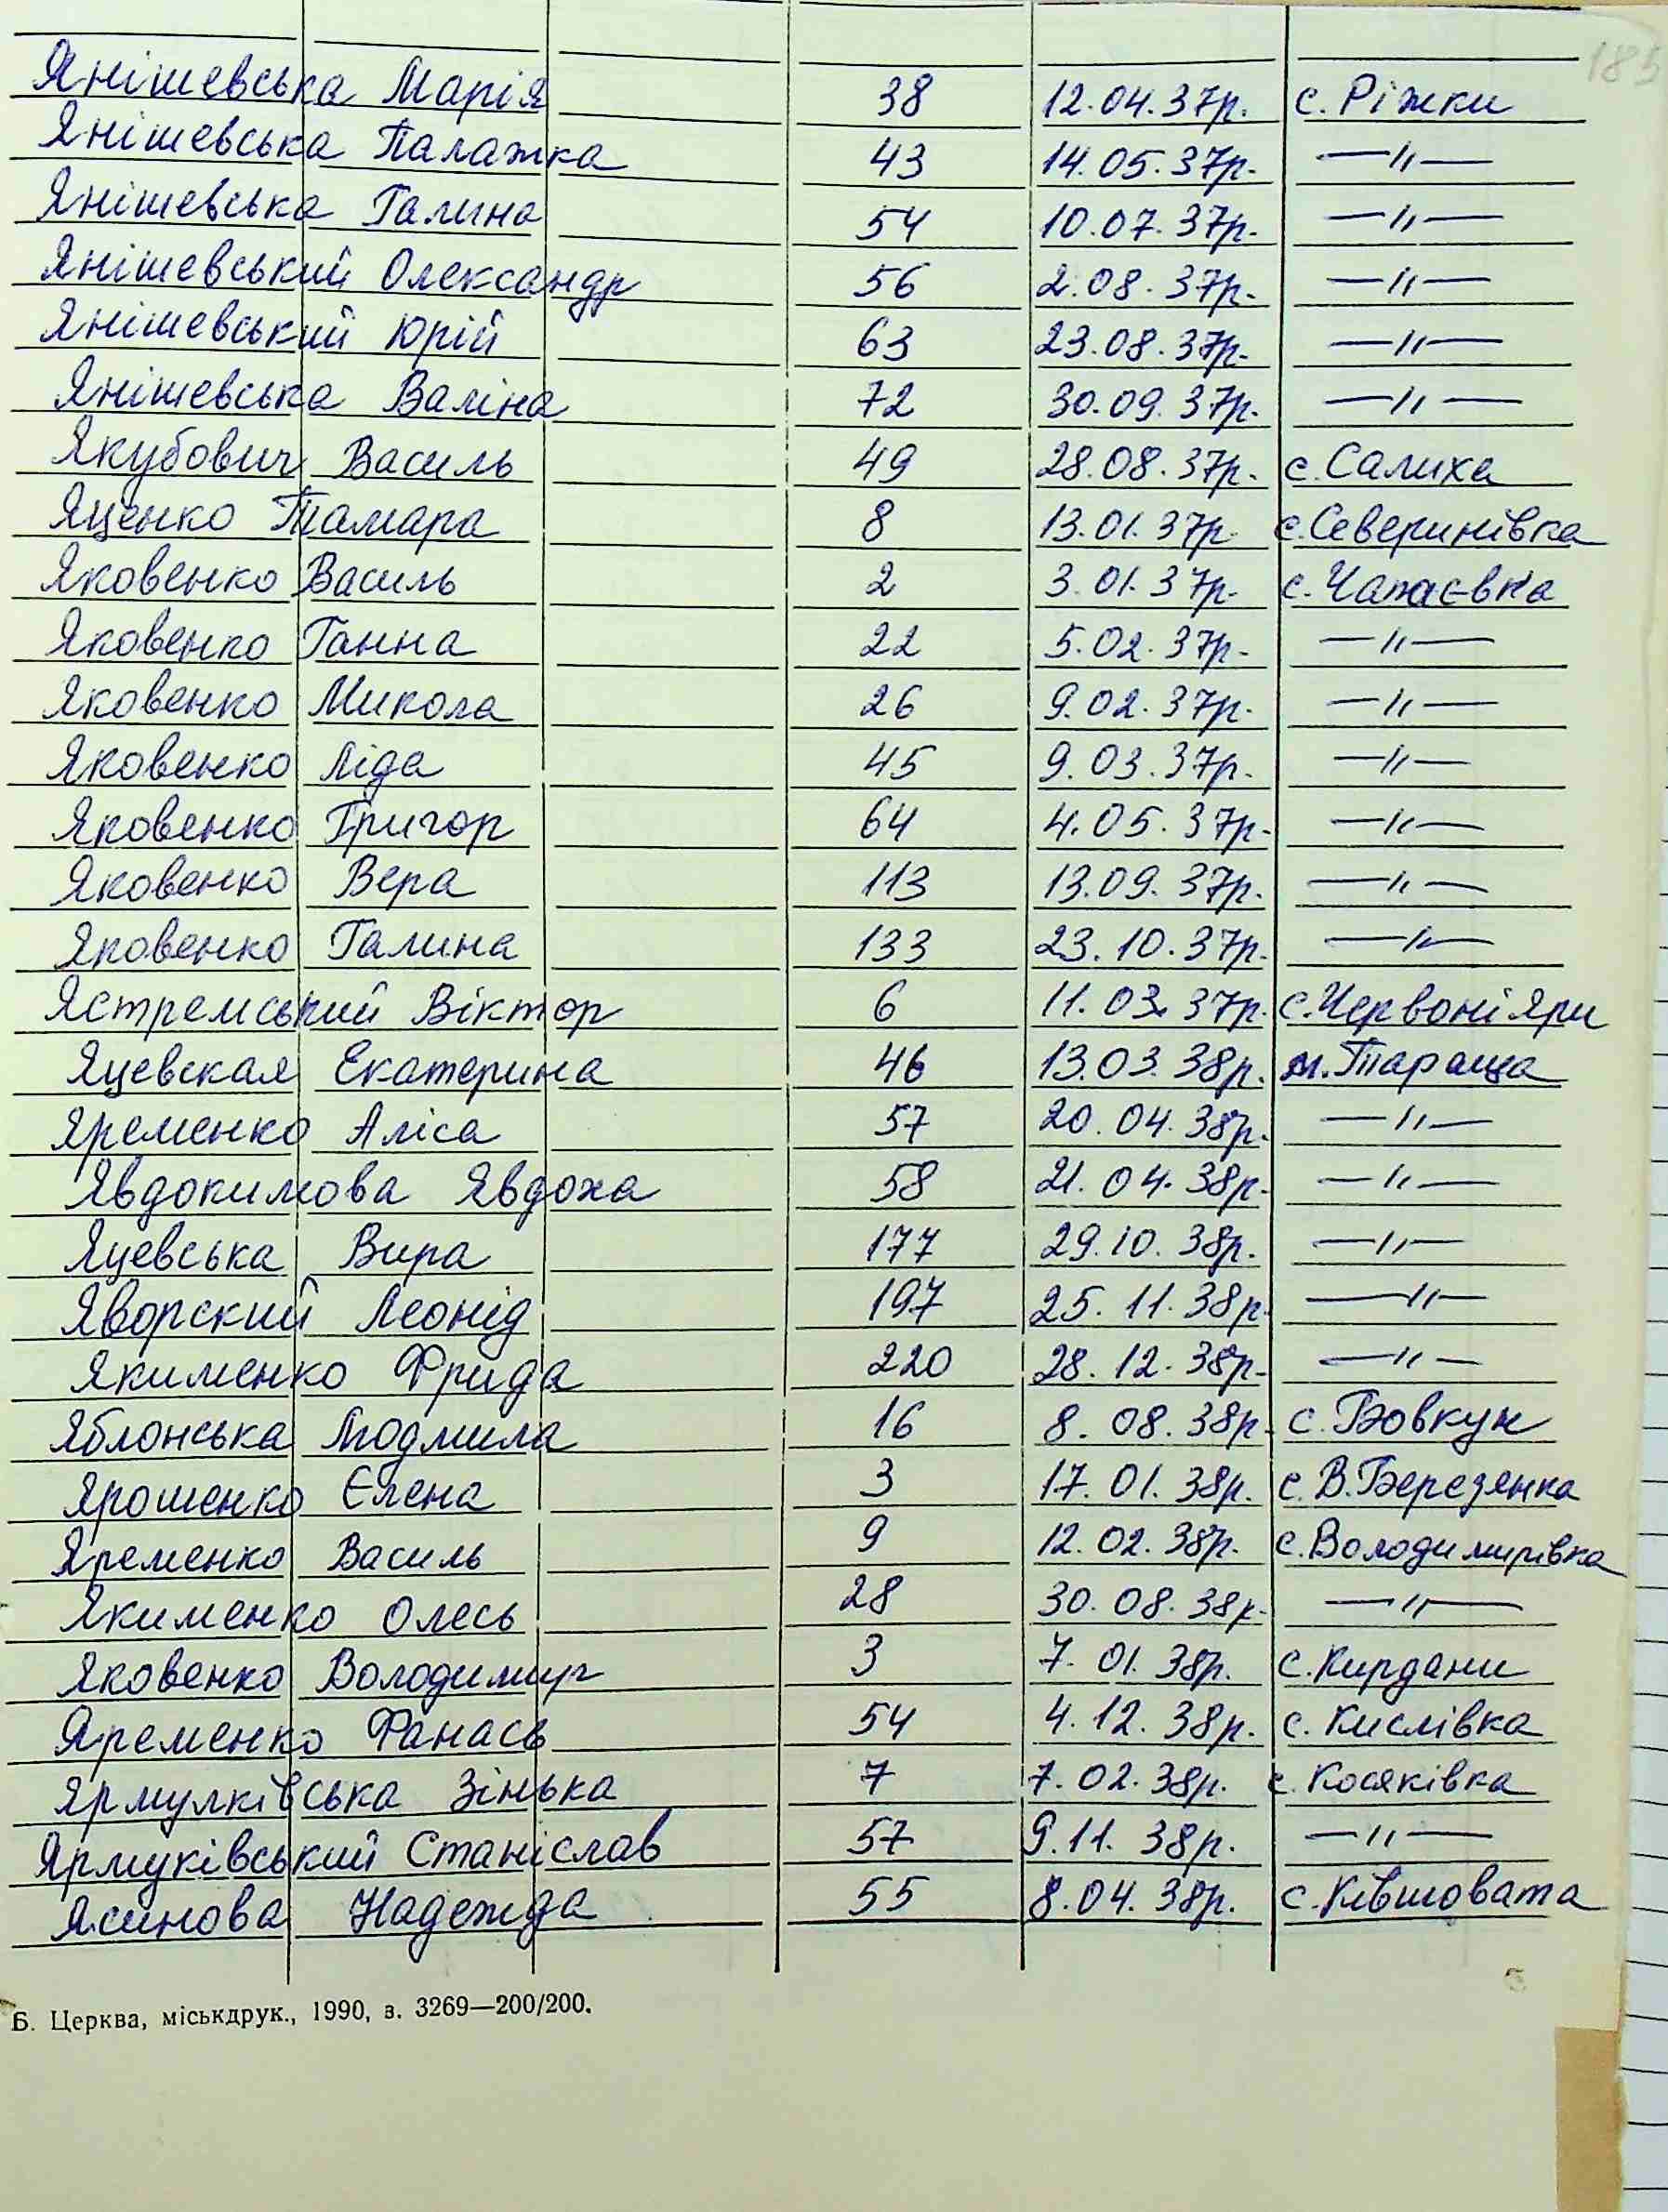 185
Янішевська Марія 38 12.04.37р. с. Ріжки
Янішевська Палажка 43 14.05.37р. —〃—
Янішевська Галина 54 10.07.37р. —〃—
Янішевський Олександр 56 2.08.37р. —〃—
Янішевський Юрій 63 23.08.37р. —〃—
Янішевська Валіна 72 30.09.37р. —〃—
Якубович Василь 49 28.08.37р. с. Салиха
Яценко Тамара 8 13.01.37р. с. Северинівка
Яковенко Василь 2 3.01.37р. с. Чапаєвка
Яковенко Ганна 22 5.02.37р. —〃—
Яковенко Микола 26 9.02.37р. —〃—
Яковенко Ліда 45 9.03.37р. —〃—
Яковенко Григор 64 4.05.37р. —〃—
Яковенко Вера 113 13.09.37р. —〃—
Яковенко Галина 133 23.10.37р. —〃—
Ястремський Віктор 6 11.03.37р. с. Червоні Яри
Яцевская Екатерина 46 13.03.38р. м. Тараща
Яременко Аліса 57 20.04.38р. —〃—
Явдокимова Явдоха 58 21.04.38р. —〃—
Яцевська Вира 177 29.10.38р. —〃—
Яворский Леонід 197 25.11.38р. —〃—
Якименко Фрида 220 28.12.38р. —〃—
Яблонська Людмила 16 8.08.38р. с. Бовкун
Ярошенко Єлена 3 17.01.38р. с. В. Березянка
Яременко Василь 9 12.02.38р. с. Володимирівка
Якименко Олесь 28 30.08.38р. —〃—
Яковенко Володимир 3 7.01.38р. с. Кирдани
Яременко Фанась 54 4.12.38р. с. Кислівка
Ярмулківська Зінька 7 7.02.38р. с. Косяківка
Ярмуківський Станіслав 57 9.11.38р. —〃—
Ясинова Надежда 55 8.04.38р. с. Ківшовата
Б. Церква, міськдрук., 1990, з. 3269—200/200.